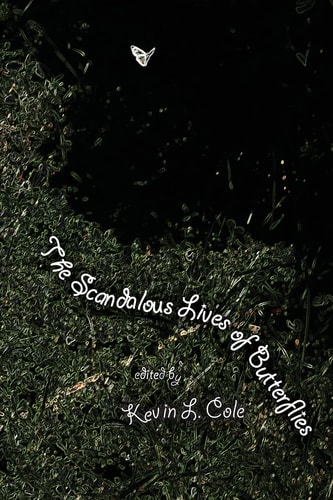 The Scandalous Lives of Butterflies
edited by
Kevin L. Cole